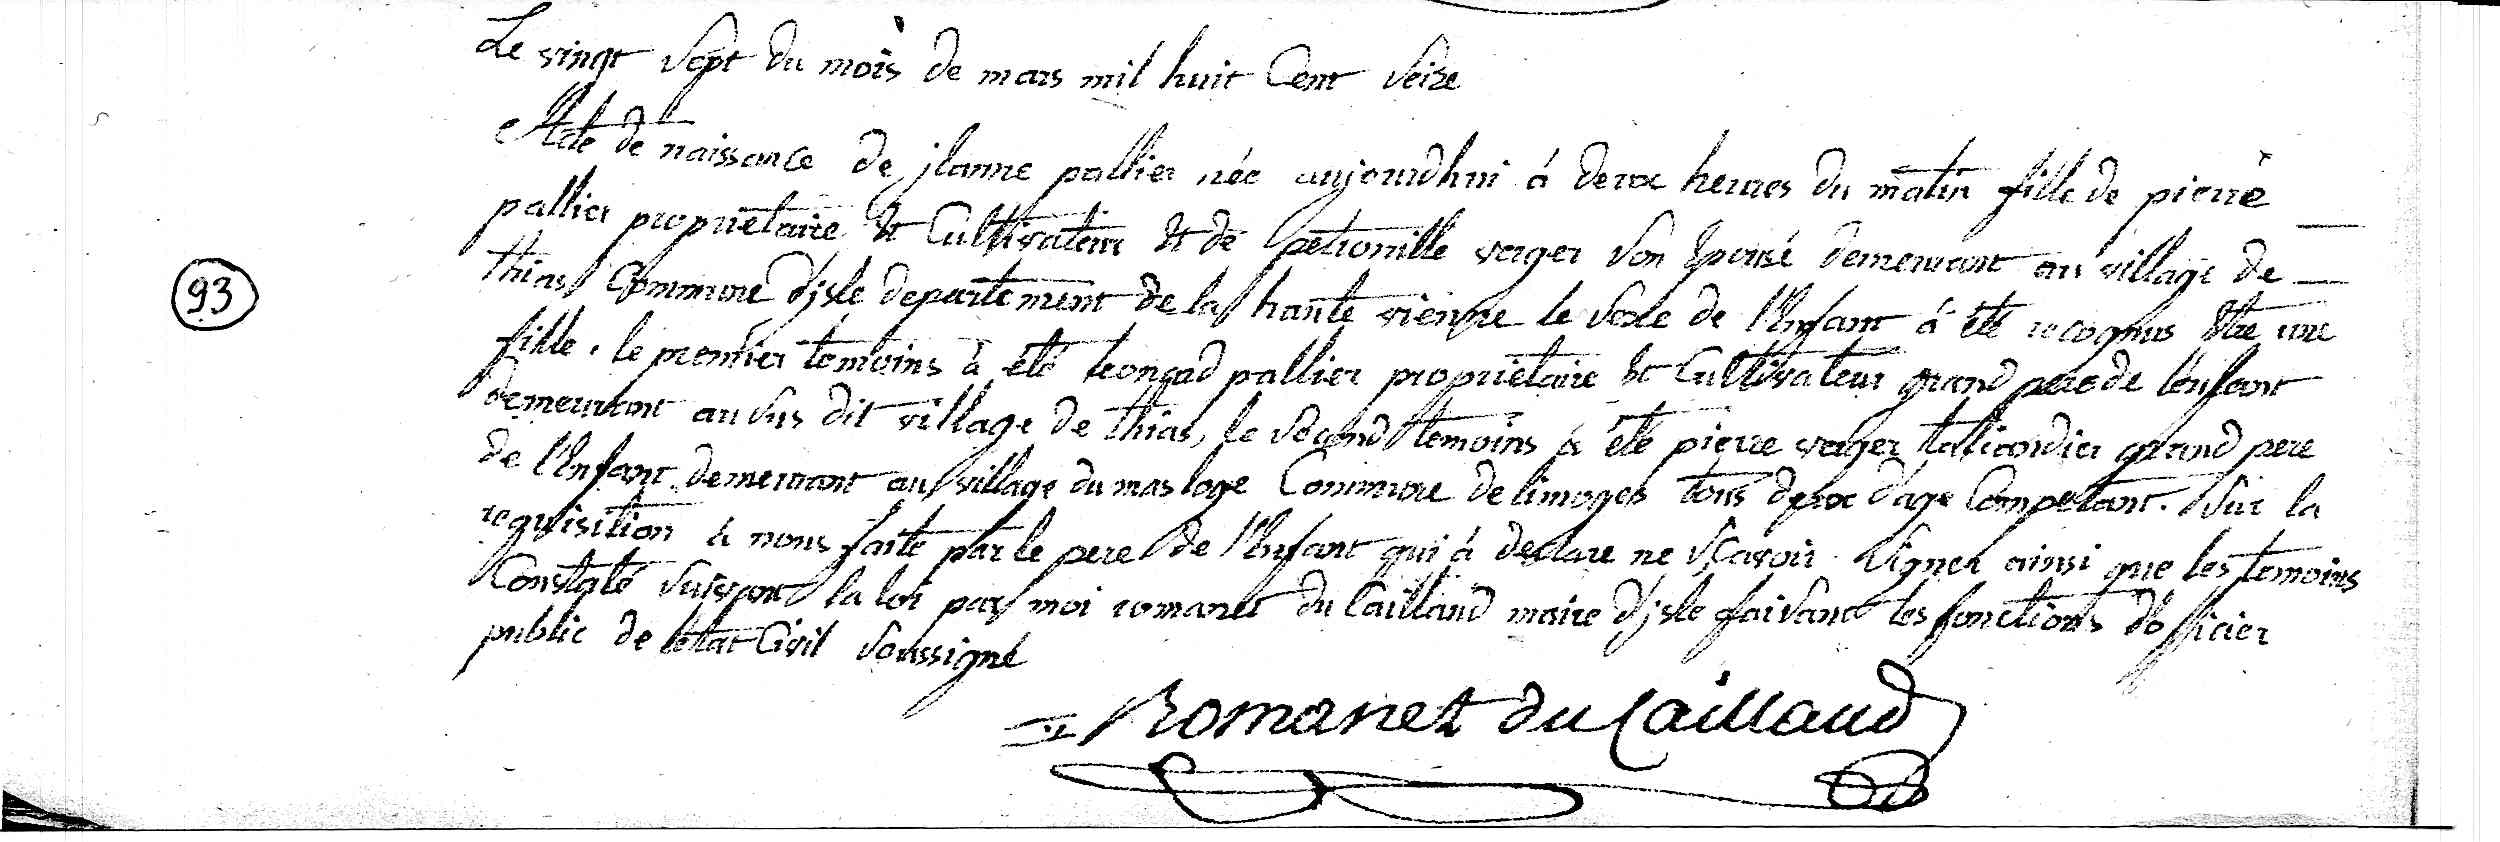 Le vingt sept du mois de mars mil huit Cent seize
Acte de naissance de jeanne pallier née aujourdhui à deux heures du matin fille de pierre
pallier proprietaire et Cultivateur et de petronille verger son Epouse demeurant au village de
thias Commune d'jsle departement de la haute vienne le sexe de l'Enfant à été recognus Etre une
fille. le premier temoins à été leonard pallier proprietaire et Cultivateur grand pere de l'enfant
demeurant au sus dit village de thias, le second temoins à été pierre verger grand pere
de l'Enfant demeurant au village du mas loge Commune de limoges tous deux d'age Competant. Sur la
requisition à nous faite par le pere de l'Enfant qui à declare ne sçavoir signer ainsi que les temoins
Constaté suivant la loi par moi romanet du Caillaud maire d'jsle faisant les fonctions d'officier
public de l'etat Civil soussigné
Romanet du Caillaud
93